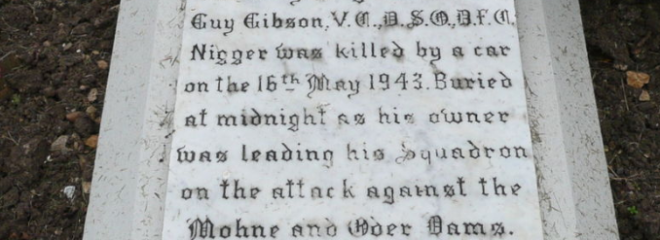 Guy Gibson, V.C., D.S.O., D.F.C.
Nigger was killed by a car
on the 16th May 1943. Buried
at midnight as his owner
was leading his Squadron
on the attack against the
Mohne and Oder Dams.